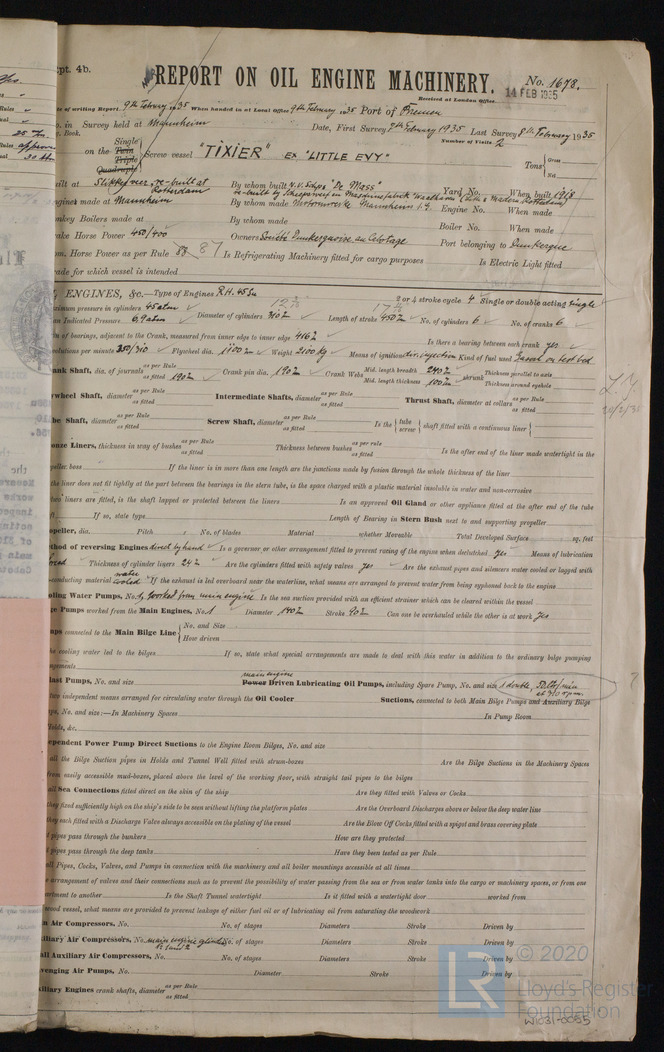 pt. 4b.
REPORT ON OIL ENGINE MACHINERY.
No. 1678.
Received at London Office 14 FEB 1935
of writing Report 9th February 1935 When handed in at Local Office 9th February 1935 Port of Bremen
in Survey held at Mannheim Date, First Survey 8th February 1935 Last Survey 8th February 1935
Book. Number of Visits 2
on the Single Twin Triple Quadruple Screw vessel "TIXIER" ex "LITTLE EVY" Tons Gross Net
ilt at Slikkerveer, re-built at Rotterdam By whom built N.V. Schps "De Maas" Yard No. When built 1918
re-built by Scheepswerf en
gines made at Mannheim By whom made Motorenwerke Mannheim A.G. Engine No. When made
nkey Boilers made at By whom made Boiler No. When made
ake Horse Power 450/400 Owners Société Dunkerquoise de Cabotage Port belonging to Dunkerque
m. Horse Power as per Rule 88 87 Is Refrigerating Machinery fitted for cargo purposes Is Electric Light fitted
rade for which vessel is intended
ENGINES, &c.—Type of Engines R.H. 45 Su 2 or 4 stroke cycle 4 Single or double acting single
aximum pressure in cylinders 45 atm Diameter of cylinders 310 Length of stroke 450 No. of cylinders 6 No. of cranks 6
an Indicated Pressure 6,9 atm
n of bearings, adjacent to the Crank, measured from inner edge to inner edge 416 Is there a bearing between each crank yes
volutions per minute 350/310 Flywheel dia. 1100 Weight 2100 Kg Means of ignition Air injection Kind of fuel used
ank Shaft, dia. of journals as per Rule as fitted 190 Crank pin dia. 190 Crank Webs Mid. length breadth 240 Mid. length thickness 100 shrunk Thickness parallel to axis Thickness around eyehole
L.Y.
wheel Shaft, diameter as per Rule as fitted Intermediate Shafts, diameter as per Rule as fitted Thrust Shaft, diameter at collars as per Rule as fitted
be Shaft, diameter as per Rule as fitted Screw Shaft, diameter as per Rule as fitted Is the tube screw shaft fitted with a continuous liner
onze Liners, thickness in way of bushes as per Rule as fitted Thickness between bushes as per rule as fitted Is the after end of the liner made watertight in the
peller boss If the liner is in more than one length are the junctions made by fusion through the whole thickness of the liner
the liner does not fit tightly at the part between the bearings in the stern tube, is the space charged with a plastic material insoluble in water and non-corrosive
two liners are fitted, is the shaft lapped or protected between the liners Is an approved Oil Gland or other appliance fitted at the after end of the tube
t If so, state type Length of Bearing in Stern Bush next to and supporting propeller
opeller, dia. Pitch No. of blades Material whether Moveable Total Developed Surface sq. feet
ethod of reversing Engines direct by hand Is a governor or other arrangement fitted to prevent racing of the engine when declutched yes Means of lubrication
forced Thickness of cylinder liners 24 Are the cylinders fitted with safety valves yes Are the exhaust pipes and silencers water cooled or lagged with
-conducting material water cooled If the exhaust is led overboard near the waterline, what means are arranged to prevent water from being syphoned back to the engine
oling Water Pumps, No. 1, worked from main engine Is the sea suction provided with an efficient strainer which can be cleared within the vessel
ge Pumps worked from the Main Engines, No. 1 Diameter 140 Stroke 90 Can one be overhauled while the other is at work yes
umps connected to the Main Bilge Line No. and Size How driven
he cooling water led to the bilges If so, state what special arrangements are made to deal with this water in addition to the ordinary bilge pumping
ngements
last Pumps, No. and size main engine Power Driven Lubricating Oil Pumps, including Spare Pump, No. and size 1 double, 50 ltr/min at 310 r.p.m. ?
two independent means arranged for circulating water through the Oil Cooler Suctions, connected to both Main Bilge Pumps and Auxiliary Bilge
ps, No. and size:—In Machinery Spaces In Pump Room
Holds, &c.
ependent Power Pump Direct Suctions to the Engine Room Bilges, No. and size
all the Bilge Suction pipes in Holds and Tunnel Well fitted with strum-boxes Are the Bilge Suctions in the Machinery Spaces
from easily accessible mud-boxes, placed above the level of the working floor, with straight tail pipes to the bilges
all Sea Connections fitted direct on the skin of the ship Are they fitted with Valves or Cocks
they fixed sufficiently high on the ship's side to be seen without lifting the platform plates Are the Overboard Discharges above or below the deep water line
they each fitted with a Discharge Valve always accessible on the plating of the vessel Are the Blow Off Cocks fitted with a spigot and brass covering plate
t pipes pass through the bunkers How are they protected
t pipes pass through the deep tanks Have they been tested as per Rule
all Pipes, Cocks, Valves, and Pumps in connection with the machinery and all boiler mountings accessible at all times
e arrangement of valves and their connections such as to prevent the possibility of water passing from the sea or from water tanks into the cargo or machinery spaces, or from one
partment to another Is the Shaft Tunnel watertight Is it fitted with a watertight door worked from
wood vessel, what means are provided to prevent leakage of either fuel oil or of lubricating oil from saturating the woodwork
n Air Compressors, No. No. of stages Diameters Stroke Driven by
iliary Air Compressors, No. main engine cylinders 1 and 2 No. of stages Diameters Stroke Driven by
all Auxiliary Air Compressors, No. No. of stages Diameters Stroke Driven by
venging Air Pumps, No. Diameter Stroke Driven by
iliary Engines crank shafts, diameter as per Rule as fitted
© 2020
LR
Lloyd's Register
Foundation
W1031-0055